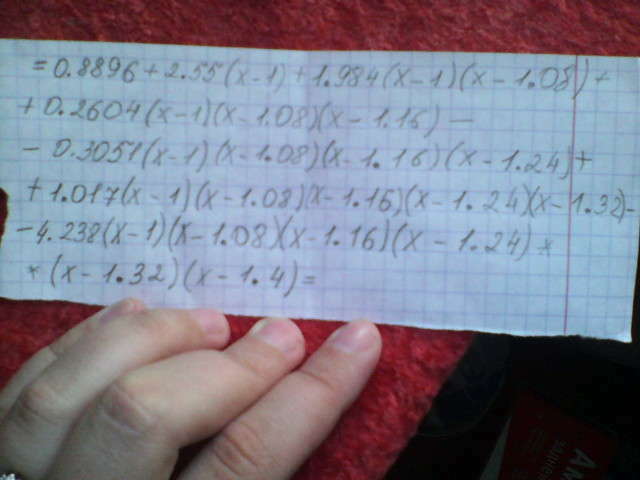 = 0.8896 + 2.55(x-1) + 1.984(x-1)(x-1.08) +
+ 0.2604(x-1)(x-1.08)(x-1.16) -
- 0.3051(x-1)(x-1.08)(x-1.16)(x-1.24) +
+ 1.017(x-1)(x-1.08)(x-1.16)(x-1.24)(x-1.32) -
- 4.238(x-1)(x-1.08)(x-1.16)(x-1.24) *
* (x-1.32)(x-1.4) =